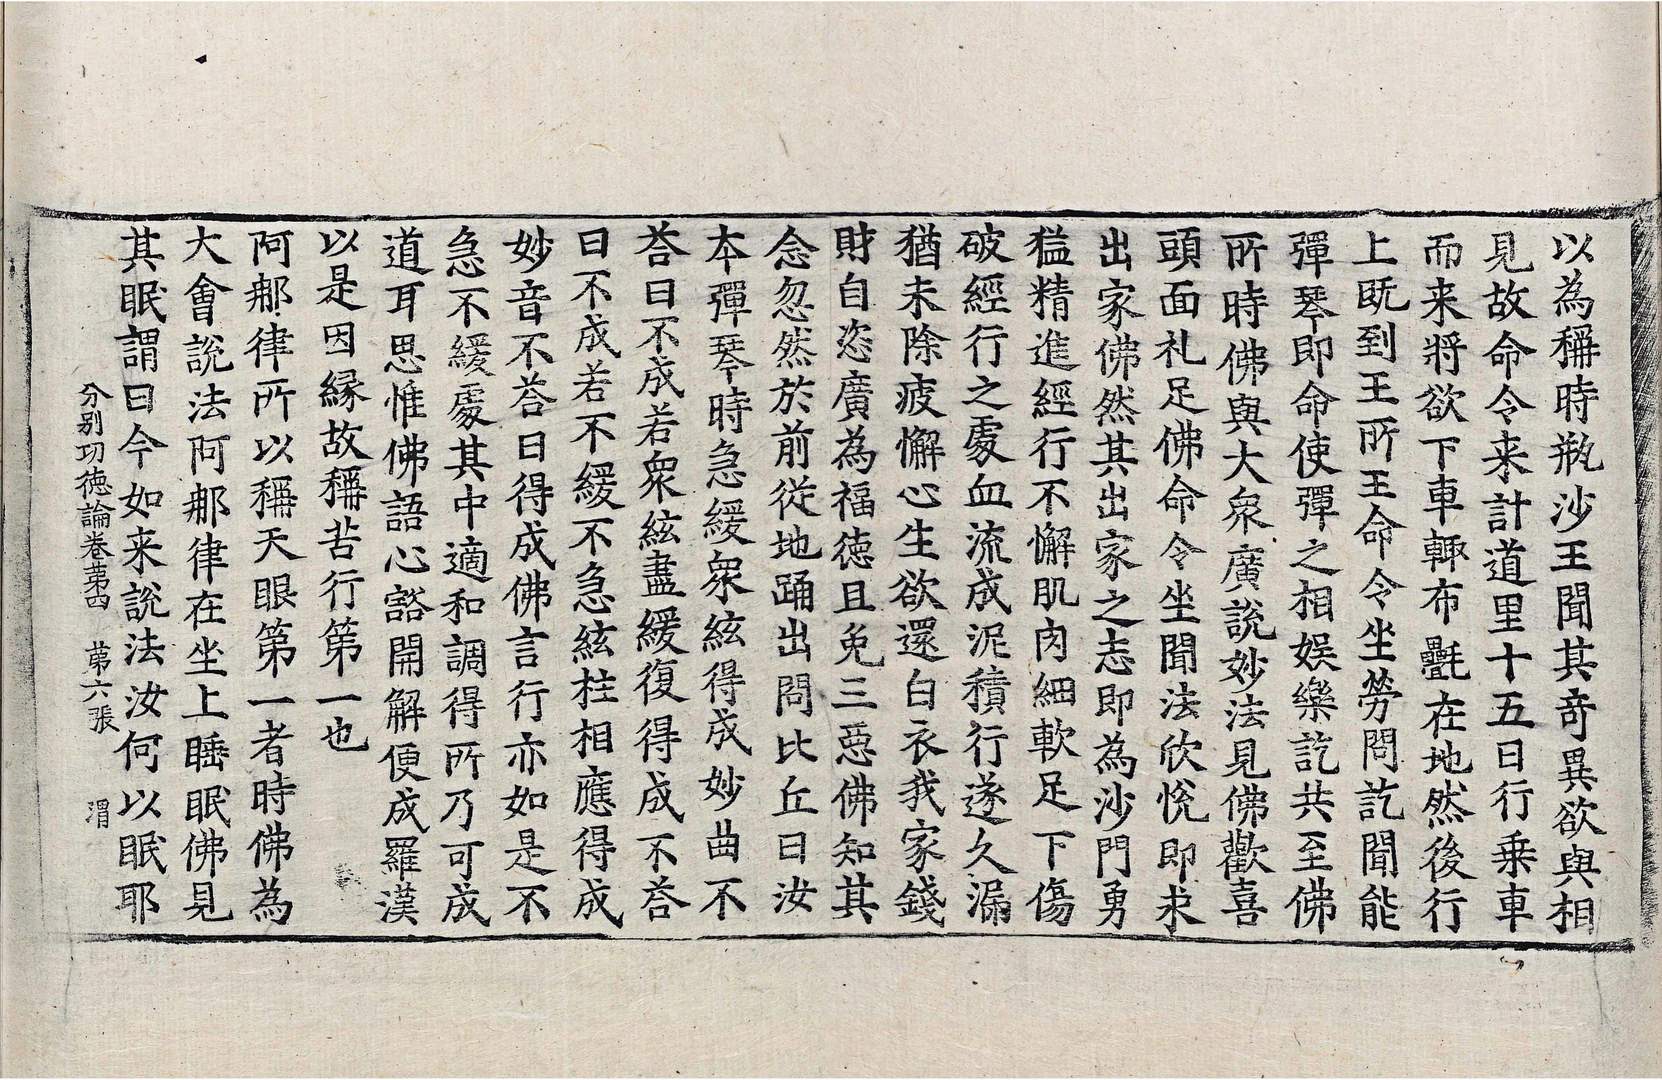 以為稱時甁沙王聞其奇異欲與相
見故命令来計道里十五日行乗車
而来將欲下車輙布㲲在地然後行
上旣到王所王命令坐勞問訖聞能
彈琴即命使彈之相娱樂訖共至佛
所時佛與大衆廣說妙法見佛歡喜
頭面礼足佛命令坐聞法欣恱即求
出家佛然其出家之志即為沙門勇
猛精進經行不懈肌肉細軟足下傷
破經行之處血流成泥積行遂久漏
猶未除疲懈心生欲還白衣我家錢
財自恣廣為福徳且免三惡佛知其
念忽然於前從地踊出問比丘曰汝
本彈琴時急緩衆絃得成妙曲不
荅曰不成若衆絃盡緩復得成不荅
曰不成若不緩不急絃柱相應得成
妙音不荅曰得成佛言行亦如是不
急不緩處其中適和調得所乃可成
道耳思惟佛語心豁開解便成羅漢
以是因縁故稱苦行第一也
阿那律所以稱天眼第一者時佛為
大會說法阿那律在坐上睡眠佛見
其眠謂曰今如来說法汝何以眠耶
分别功徳論卷苐四 苐六張 渭